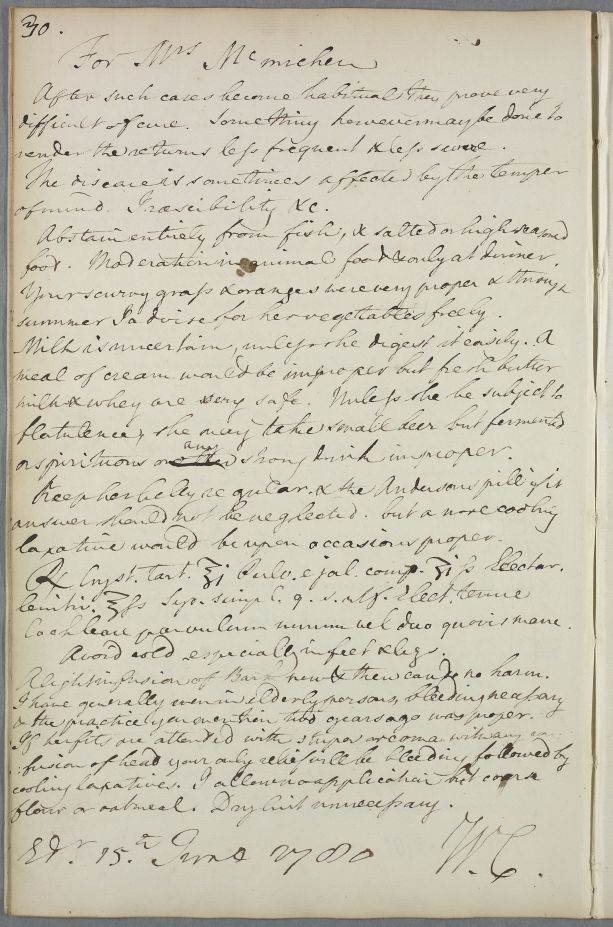 30.
For Mrs Mcmichen
After such cases become habitual they prove very
difficult of cure. Something however may be done to
render the returns less frequent & less severe.
The disease is sometimes affected by the temper
of mind. Irascibility &c.
Abstain entirely from fish, & salted or high seasond
food. Moderation in animal food & only at dinner.
Your scurvy grass & oranges were very proper & through
summer I advise for her vegetables freely.
Milk is uncertain, unless she digest it easily. A
meal of cream would be improper but fresh butter
milk & whey are very safe. Unless she be subject to
flatulence, she may take small beer but fermented
or spirituous or any other strong drink improper.
Keep her belly regular. & the Andersons pill if it
answer should not be neglected. but a more cooling
laxative would be upon occasions proper.
℞ Cryst. tart. ʒj Pulv. e jal. comp. ʒjſs Electar.
lenitiv. ʒſs Syr. simpl. q. s. ut f. Elect. tenue
Cochleare parvulum unum vel duo quovis mane.
Avoid cold especially in feet & legs.
A light infusion of Bark now & then can do no harm.
I have generally seen in elderly persons, bleeding necessary
& the practice you mention two years ago was proper.
If her fits are attended with stupor or coma with any con-
fusion of head your only relief will be bleeding followed by
cooling laxatives. I allow no application but coarse
flour or oatmeal. Dry lint unnecessary.
Edr. 15.th June 1780
W. C.